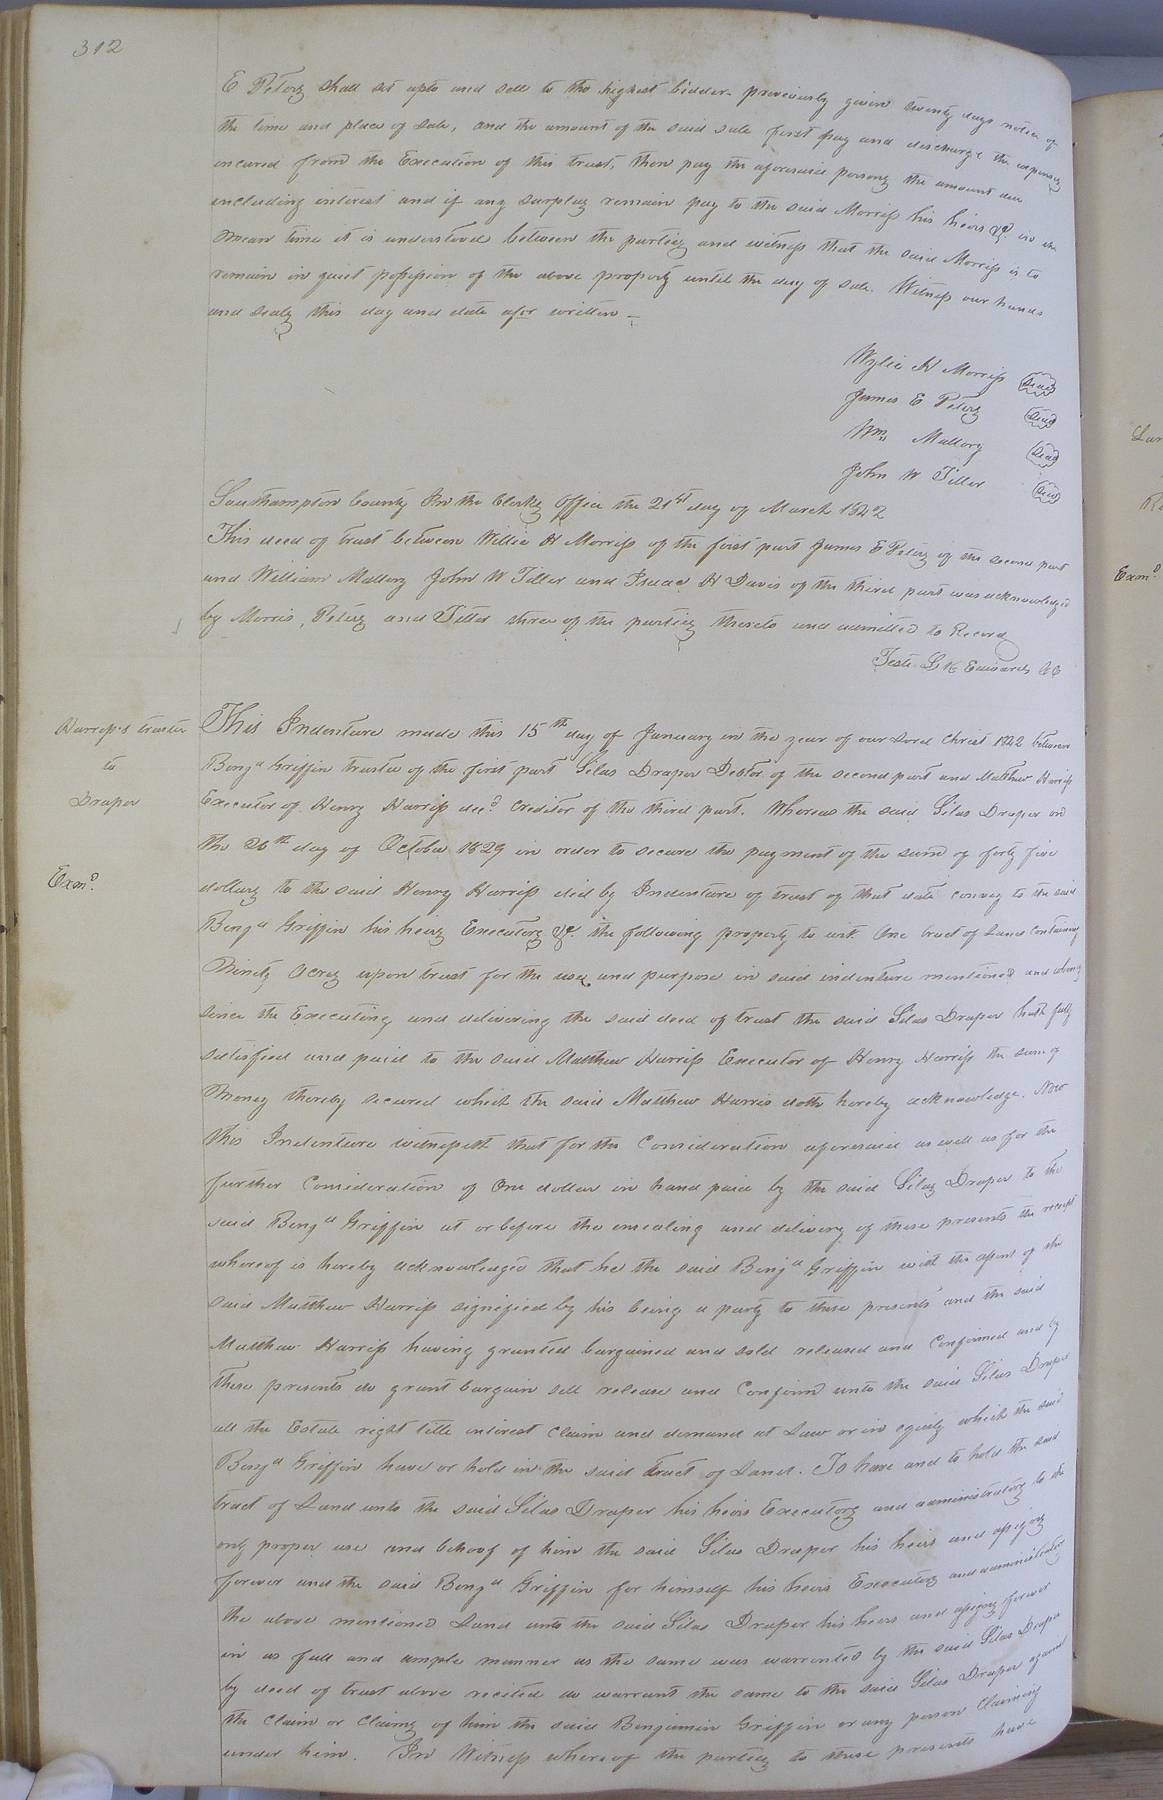 312
E Peters shall set upto and sell to the highest bidder previously given twenty days notice of
the time and place of sale, and the amount of the said sale first pay and discharge the expenses
incured from the Execution of this trust, then pay the aforesaid persons the amount due
including interest and if any surplus remain pay to the said Morriss his heirs &c. in the
mean time it is understood between the parties and witness that the said Morriss is to
remain in quiet possession of the above property until the day of sale. Witness our hands
and seals this day and date afor written –
Wylie H Morriss Seal
James E Peters Seal
Wm. Mallory Seal
John W Tiller Seal
Southampton County In the Clerks Office the 21st day of March 1842
This deed of trust between Willie H Morriss of the first part James E Peters of the second part
and William Mallory John W Tiller and Isaac H Davis of the third part was acknowledged
by Morris, Peters and Tiller three of the parties thereto and admitted to Record
Teste L R Edwards CC
Harriss's trustee
to
Draper
Exmd.
This Indenture made this 15th day of January in the year of our Lord Christ 1842 between
Benja Griffin trustee of the first part Silas Draper Debtor of the second part and Matthew Harriss
Executor of Henry Harriss decd. creditor of the third part. Whereas the said Silas Draper on
the 26th day of October 1829 in order to secure the payment of the sum of forty five
dollars to the said Henry Harriss did by Indenture of trust of that date convey to the said
Benja Griffin his heirs Executors &c. the following property to wit One tract of Land containing
Ninety Acres upon trust for the use and purpose in said indenture mentioned and whereas
since the Executing and delivering the said deed of trust the said Silas Draper hath fully
satisfied and paid to the said Matthew Harriss Executor of Henry Harriss the sum of
Money thereby secured which the said Matthew Harris doth hereby acknowledge. Now
this Indenture witnesseth that for the Consideration aforesaid as well as for the
further Consideration of One dollar in hand paid by the said Silas Draper to the
said Benja Griffin at or before the ensealing and delivery of these presents the receipt
whereof is hereby acknowledged that he the said Benja Griffin with the assent of the
said Matthew Harriss signified by his being a party to these presents and the said
Matthew Harriss having granted bargained and sold released and Confirmed and by
these presents do grant bargain sell release and Confirm unto the said Silas Draper
all the Estate right title interest claim and demand at Law or in equity which the said
Benja Griffin have or hold in the said tract of Land. To have and to hold the said
tract of Land unto the said Silas Draper his heirs Executors and administrators to the
only proper use and behoof of him the said Silas Draper his heirs and assigns
forever and the said Benja Griffin for himself his heirs Executors and administrators
the above mentioned Land unto the said Silas Draper his heirs and assigns forever
in as full and ample manner as the same was warrented by the said Silas Draper
by deed of trust above recited do warrant the same to the said Silas Draper against
the Claim or Claims of him the said Benjamin Griffin or any person Claiming
under him. In Witness whereof the parties to these presents have
Exmd.